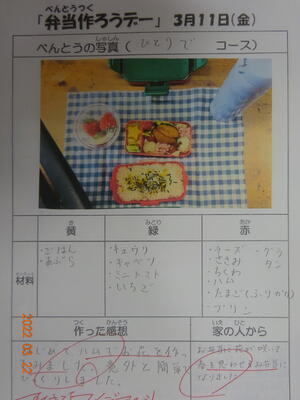 べんとうつく
「弁当作ろうデー」 3月11日(金)
しゃしん
べんとうの写真( ひとりで コース)
き みどり あか
黄 緑 赤
材料
・ごはん ・キュウリ ・チーズ ・グラタン
・あぶら ・キャベツ ・ささみ
・ミニトマト ・ちくわ
・いちご ・ハム
・たまご(ふりかけ)
・プリン
つく かんそう いえ ひと
作った感想 家の人から
はじめてハムでお花を作っ
てみました。意外と簡単で
びっくりしました。
お弁当に花が咲いて
春を思わせるお弁当に
なりました。
2022 03 22